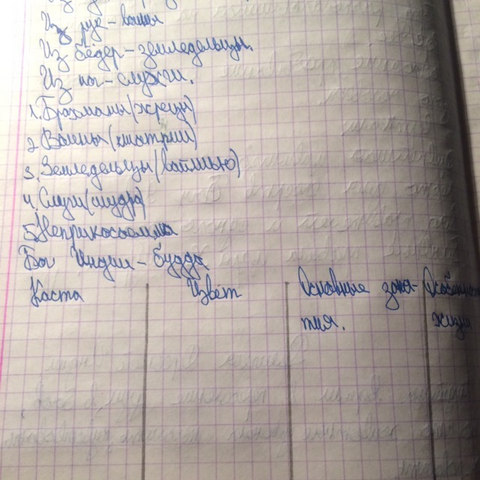 Из рук - воины
Из бёдер - земледельцы.
Из ног - слуги.
1. Брахманы (жрецы)
2. Воины (кшатрии)
3. Земледельцы (вайшью)
4. Слуги (шудра)
5. Неприкосаемма
Бог Индии - будда
Каста Цвет Основные заня- Особеннос
тия. жизни